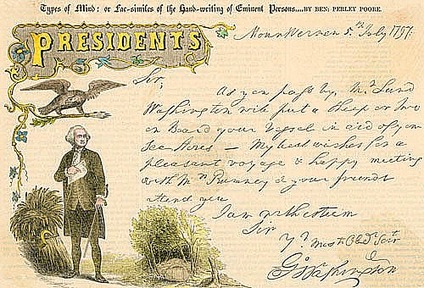 Types of Mind; or Fac-similes of the Hand-writing of Eminent Persons....BY BEN: PERLEY POORE.
PRESIDENTS
Mount Vernon 5th July 1787.
Sir,
As you pass by, Mr Lund
Washington will put a Sheep or two
on Board your Vessel in aid of your
Sea Stores — My best wishes for a
pleasant voyage & happy meeting
with Mrs Rumney & your friends
attend you
I am with esteem
Sir
Yr Most Obedt Servt
Go Washington